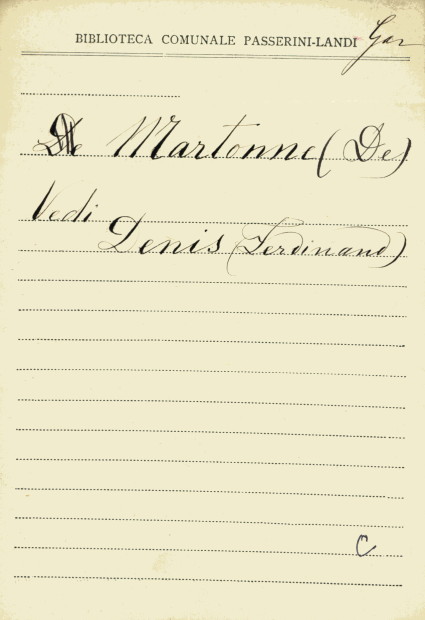 BIBLIOTECA COMUNALE PASSERINI-LANDI Gar
De Martonne (De)
Vedi
Denis (Ferdinand)
C